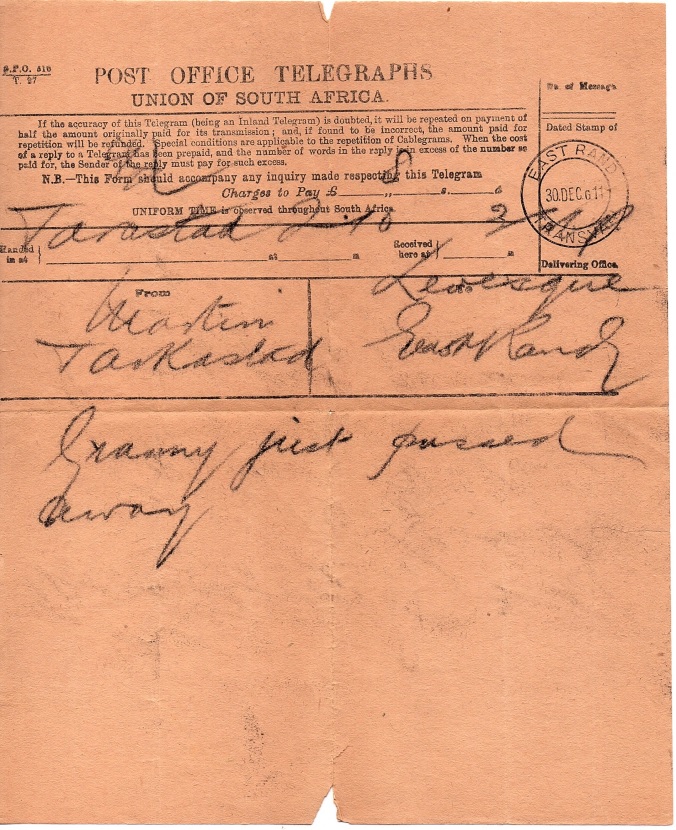 S.P.O. 510
T. 27
POST OFFICE TELEGRAPHS
UNION OF SOUTH AFRICA.
No. of Message.
If the accuracy of this Telegram (being an Inland Telegram) is doubted, it will be repeated on payment of
half the amount originally paid for its transmission; and, if found to be incorrect, the amount paid for
repetition will be refunded. Special conditions are applicable to the repetition of Cablegrams. When the cost
of a reply to a Telegram has been prepaid, and the number of words in the reply is in excess of the number so
paid for, the Sender of the reply must pay for such excess.
Dated Stamp of
N.B.—This Form should accompany any inquiry made respecting this Telegram
8
Charges to Pay £ ,, s. d
EAST RAND
30.DEC.611
TRANSVAAL
UNIFORM TIME is observed throughout South Africa.
Tarkastad 2.10
Handed in at at m
Received here at m
Delivering Office.
From
Martin
Tarkastad
Levesque
East Rand
Granny just passed
away